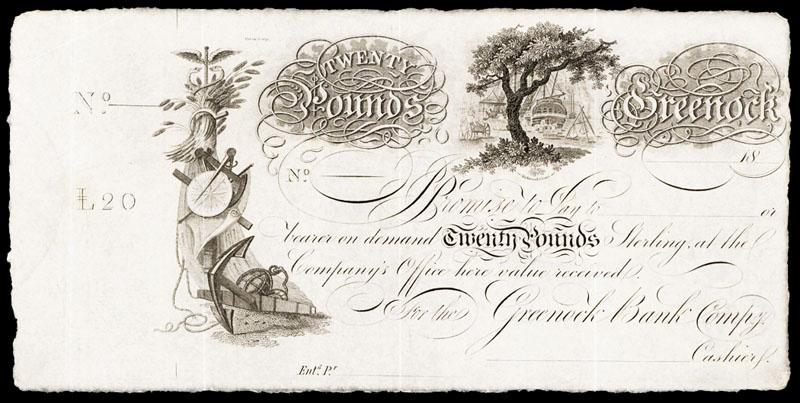 TWENTY
Pounds
Greenock
No
18
No
£20
Promise to Pay to or
bearer on demand Twenty Pounds Sterling, at the
Company's Office here value received.
For the Greenock Bank Compy.
Cashier.
Entd. Pr.